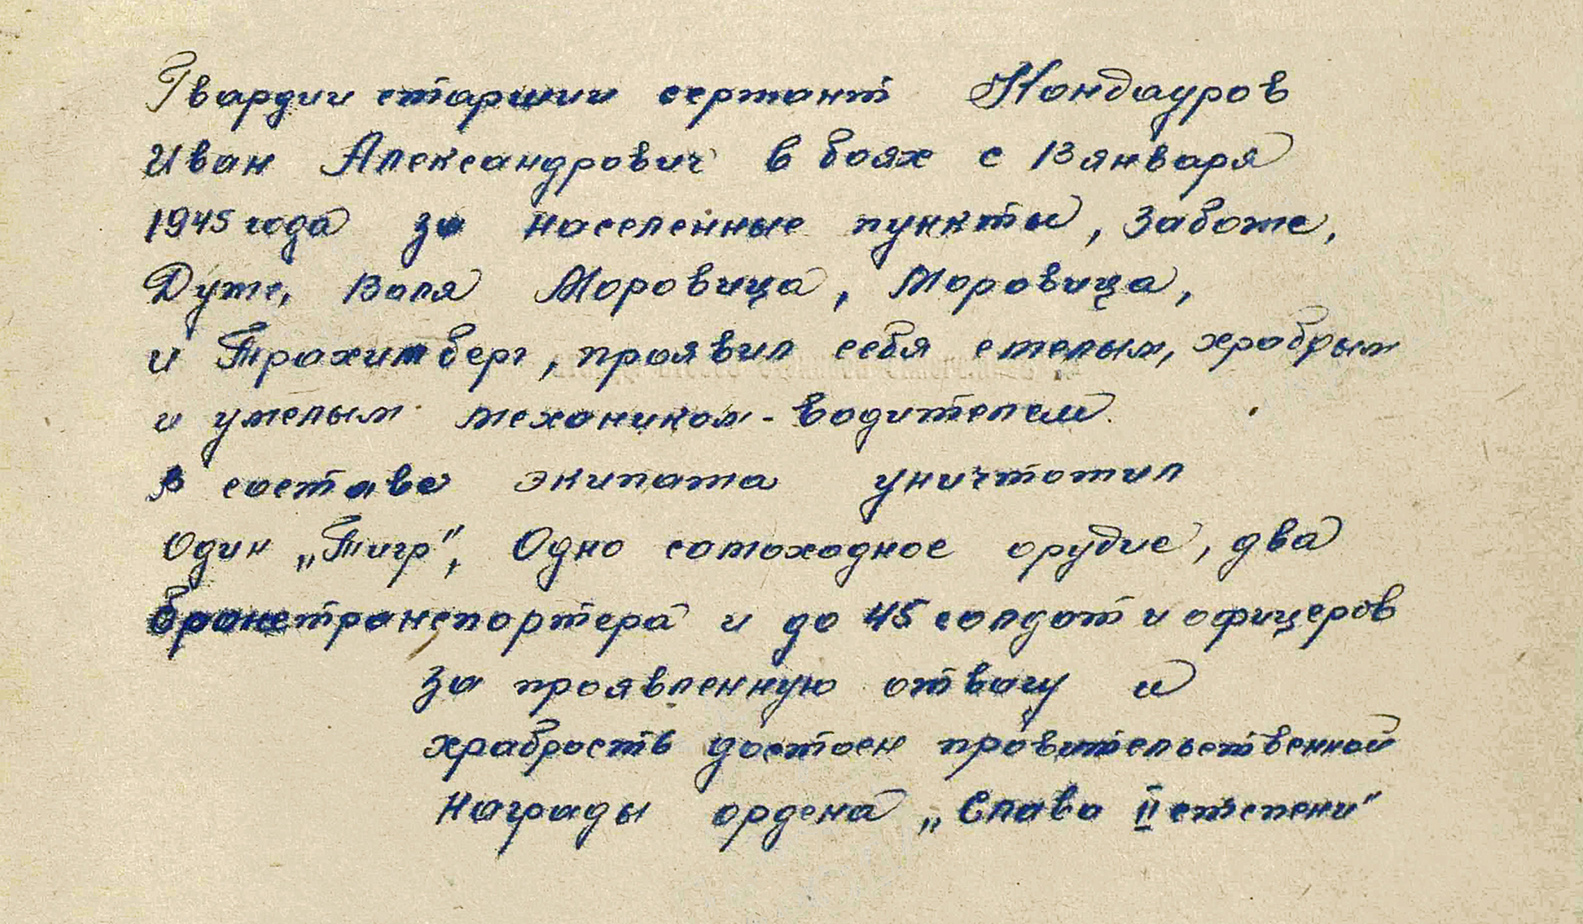 Гвардии старший сержант Кондауров
Иван Александрович в боях с 13 января
1945 года за населенные пункты, Забоже,
Дуже, Воля Моровица, Моровица,
и Трахимберг, проявил себя смелым, храбрым
и умелым механиком-водителем
В составе экипажа уничтожил
Один „Тигр", Одно самоходное орудие, два
бронетранспортера и до 45 солдат и офицеров
За проявленную отвагу и
храбрость достоен правительственной
Награды ордена „Слава II степени"